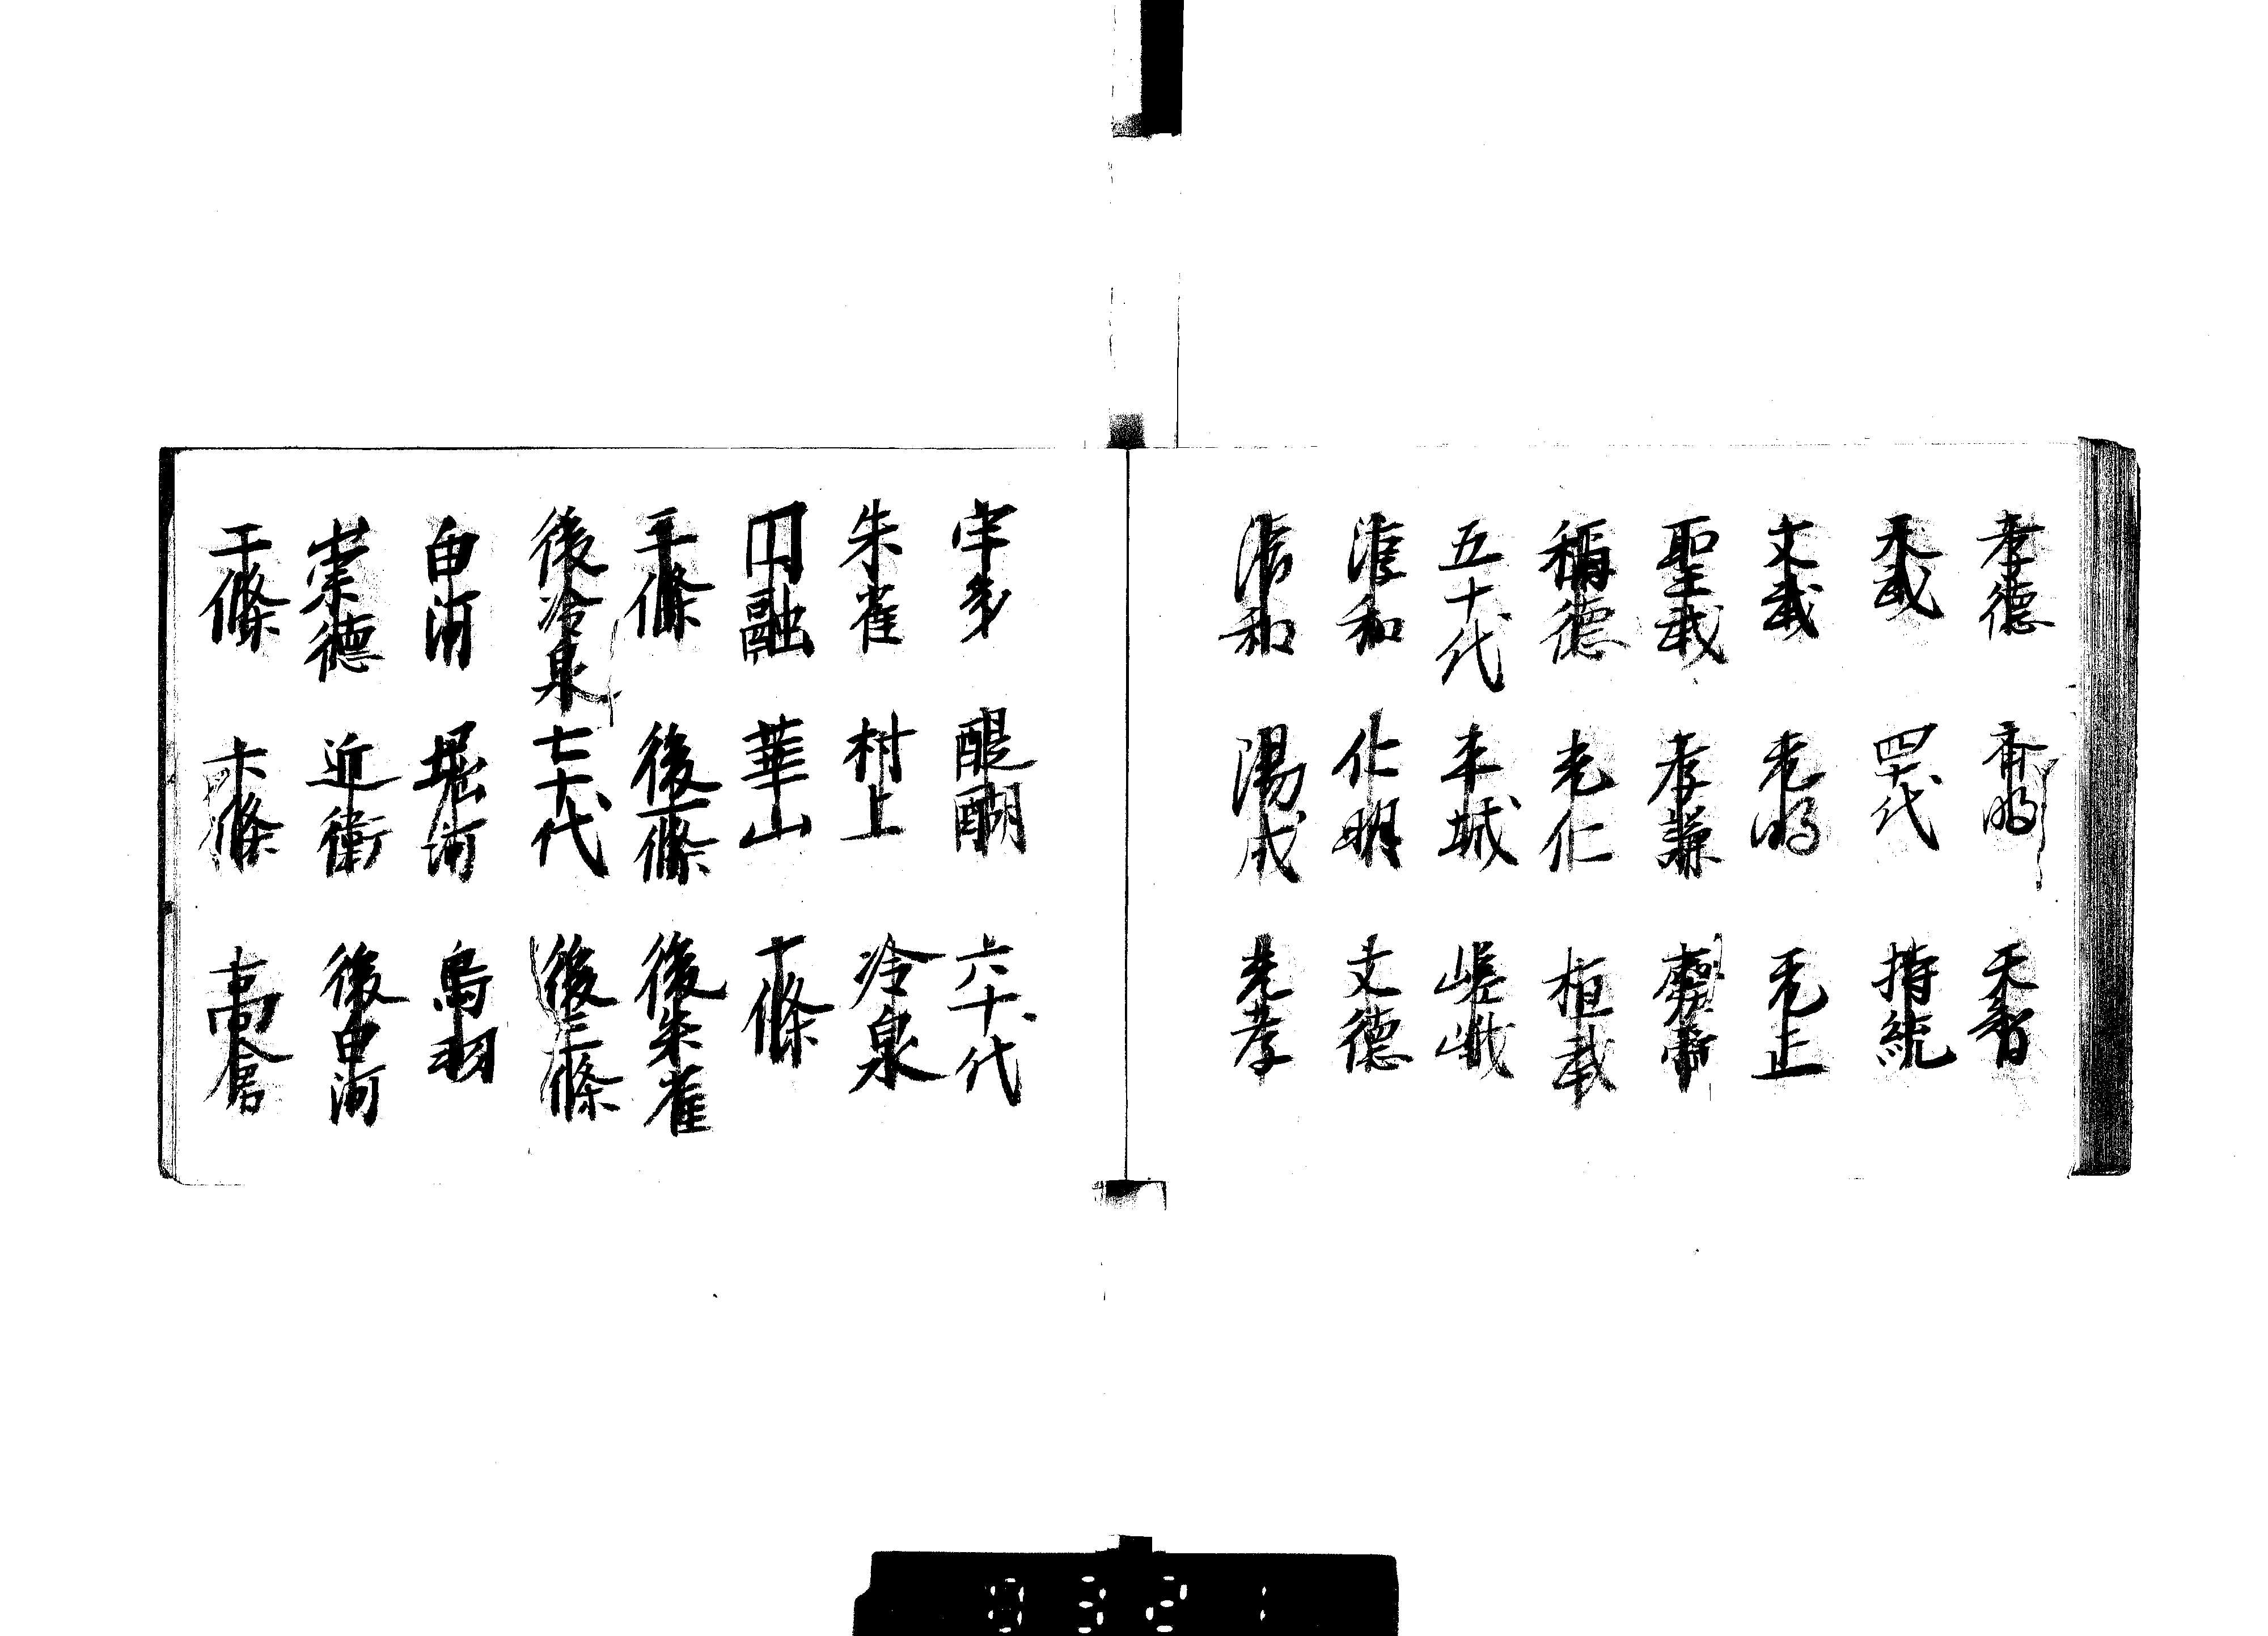 孝德 斉明 天智
天武 四十代 持統
文武 元明 元正
聖武 孝謙 廃帝
稱德 光仁 桓武
五十代 平城 嵯峨
淳和 仁明 文德
清和 陽成 光孝
宇多 醍醐 六十代
朱雀 村上 冷泉
円融 華山 一條
三條 後一條 後朱雀
後冷泉 七十代 後三條
白河 堀河 鳥羽
崇德 近衛 後白河
二條 六條 高倉